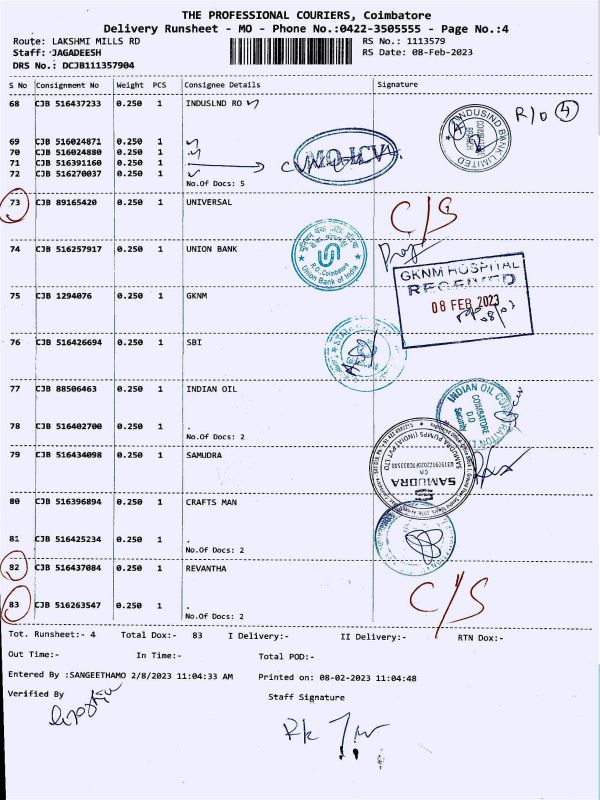 THE PROFESSIONAL COURIERS, Coimbatore
Delivery Runsheet - MO - Phone No.:0422-3505555 - Page No.:4
Route: LAKSHMI MILLS RD
RS No.: 1113579
Staff: JAGADEESH
RS Date: 08-Feb-2023
DRS No.: DCJB111357904
S No Consignment No Weight PCS Consignee Details Signature
68 CJB 516437233 0.250 1 INDUSLND RO
R/O 4
INDUSIND BANK LIMITED
69 CJB 516024871 0.250 1
70 CJB 516024880 0.250 1
71 CJB 516391160 0.250 1
72 CJB 516270037 0.250 1
No.Of Docs: 5
73 CJB 89165420 0.250 1 UNIVERSAL
C/S
74 CJB 516257917 0.250 1 UNION BANK
R.O. Coimbatore
Union Bank of India
GKNM HOSPITAL
RECEIVED
08 FEB 2023
75 CJB 1294076 0.250 1 GKNM
76 CJB 516426694 0.250 1 SBI
77 CJB 88506463 0.250 1 INDIAN OIL
INDIAN OIL CORPORATION
COIMBATORE
D.O
Security
78 CJB 516402700 0.250 1 .
No.Of Docs: 2
79 CJB 516434098 0.250 1 SAMUDRA
SAMUDRA PUMPS (INDIA) PVT LTD
CIN
SAMUDRA
80 CJB 516396894 0.250 1 CRAFTS MAN
81 CJB 516425234 0.250 1 .
No.Of Docs: 2
82 CJB 516437084 0.250 1 REVANTHA
C/S
83 CJB 516263547 0.250 1 .
No.Of Docs: 2
Tot. Runsheet:- 4 Total Dox:- 83 I Delivery:- II Delivery:- RTN Dox:-
Out Time:- In Time:- Total POD:-
Entered By :SANGEETHAMO 2/8/2023 11:04:33 AM Printed on: 08-02-2023 11:04:48
Verified By
Staff Signature